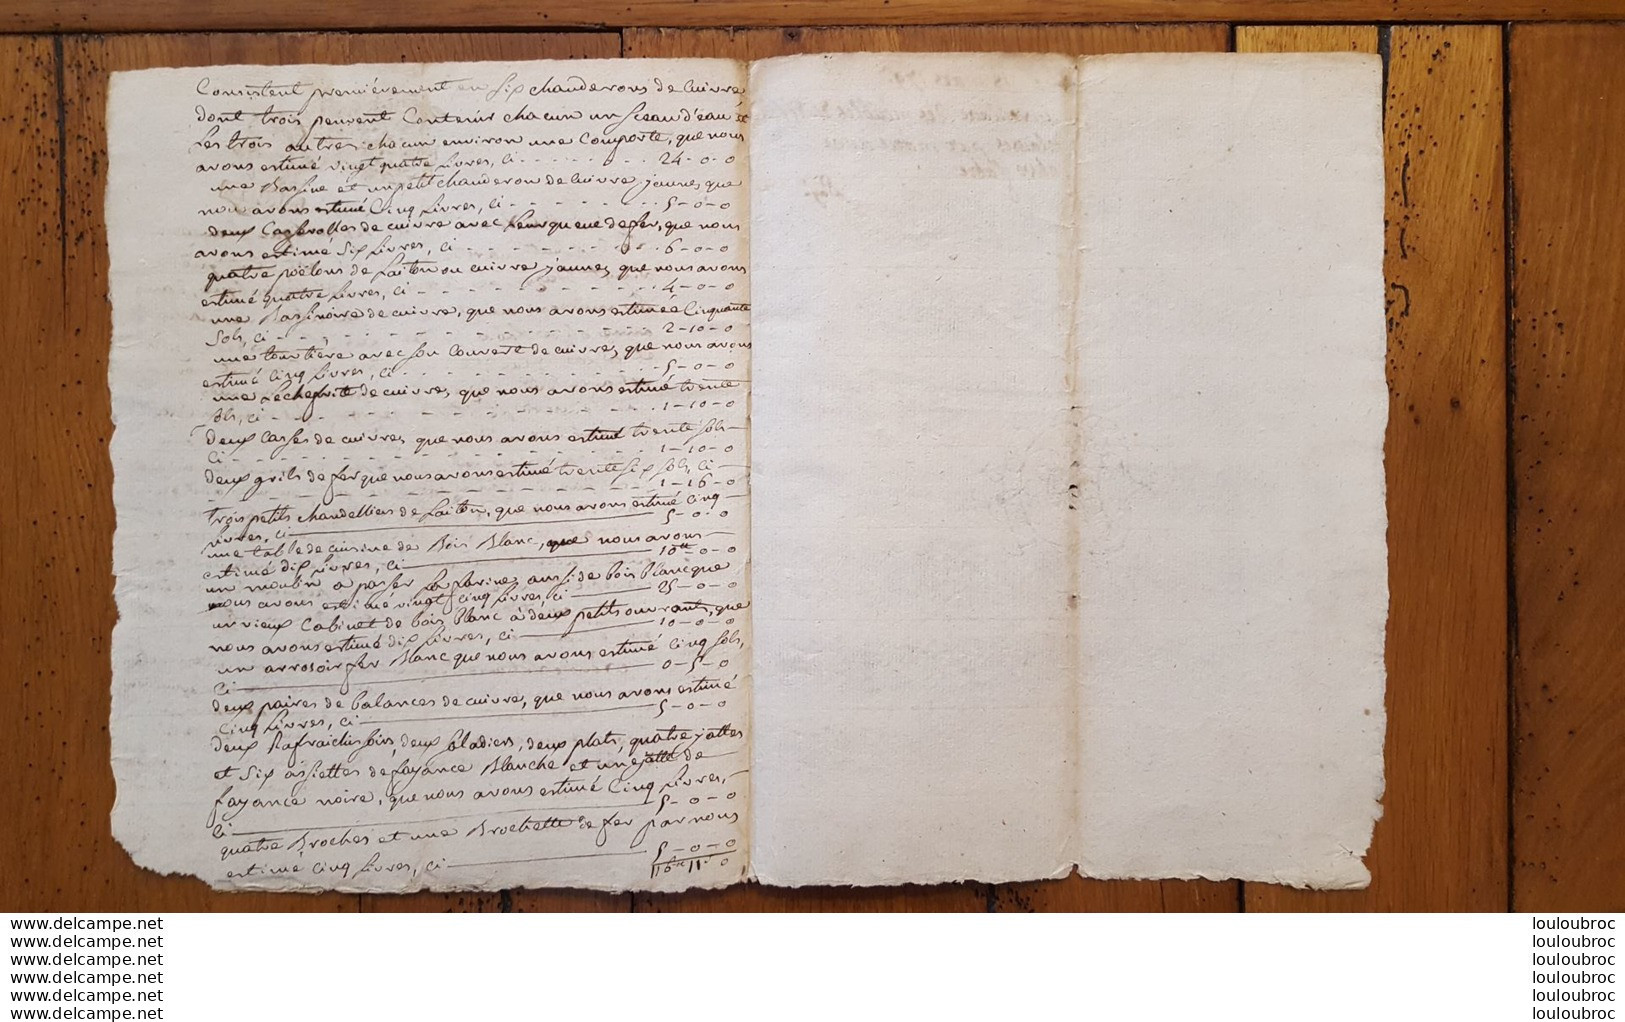 Consistent premiérement en six chauderons de Cuivre
dont trois peuvent Contenir chacun un sceau d'eau &
Les trois autres chacun environ une Comporte, que nous
avons estimé vingt quatre Livres, Ci - - - - 24-0-0
une Bassine et un petit chauderon de Cuivre jaune, que
nous avons estimé Cinq Livres, Ci - - - - 5-0-0
deux Casserolles de cuivre avec Leur queue de fer, que nous
avons estimé Six Livres, Ci - - - - 6-0-0
quatre poëlons de Laiton ou cuivre jaune, que nous avons
estimé quatre Livres, Ci - - - - 4-0-0
une Bassinoire de cuivre, que nous avons estimée Cinquante
Sols, Ci - - - - 2-10-0
une tourtière avec son Couvert de cuivre, que nous avons
estimé Cinq Livres, Ci - - - - 5-0-0
une Lechefrite de cuivre, que nous avons estimé trente
Sols, Ci - - - - 1-10-0
deux Casses de cuivre, que nous avons estimé trente sols
Ci - - - - 1-10-0
deux grils de fer que nous avons estimé trente six sols, Ci
- - - - 1-16-0
trois petits chandelliers de Laiton, que nous avons estimé Cinq
Livres, Ci 5-0-0
une table de cuisine de Bois Blanc, que nous avons
estimé dix Livres, Ci 10tt-0-0
un moulin a passer La farine, aussi de bois blanc que
nous avons estimé vingt cinq Livres, Ci 25-0-0
un vieux Cabinet de bois blanc à deux petits ouvrants, que
nous avons estimé dix Livres, Ci 10-0-0
un arrosoir fer Blanc que nous avons estimé Cinq sols,
Ci 0-5-0
deux paires de balances de cuivre, que nous avons estimé
Cinq Livres, Ci 5-0-0
deux Rafraichissoirs, deux saladiers, deux plats, quatre jattes
et Six assiettes de fayance Blanche et une jatte de
fayance noire, que nous avons estimé Cinq Livres,
Ci 5-0-0
quatre Broches et une Brochette de fer par nous
estimé Cinq Livres, Ci 5-0-0
116tt 11s 0
www.delcampe.net
www.delcampe.net
www.delcampe.net
www.delcampe.net
www.delcampe.net
www.delcampe.net
louloubroc
louloubroc
louloubroc
louloubroc
louloubroc
louloubroc